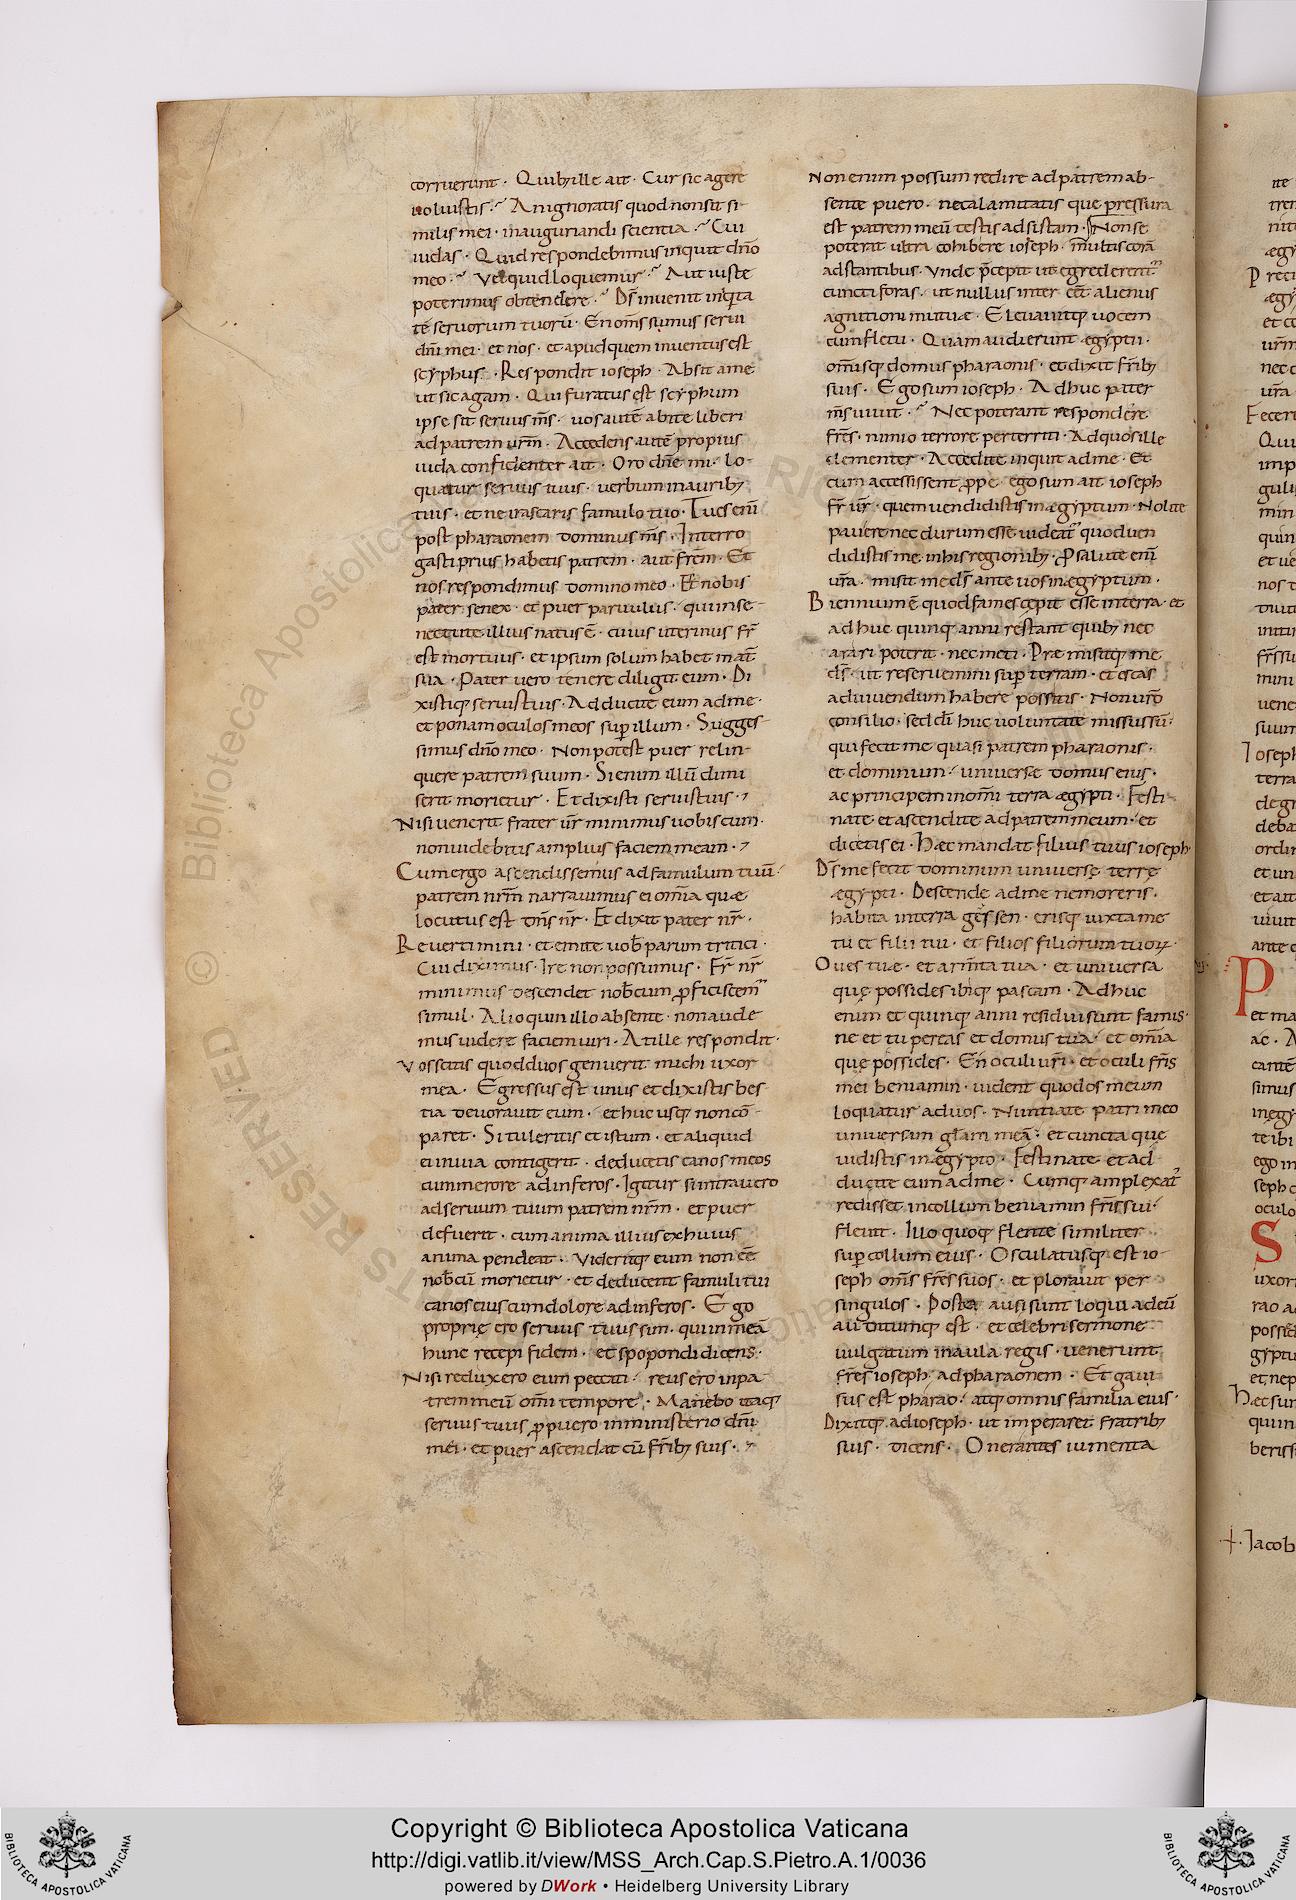 corruerunt · Quib; ille ait · Cur sic agere
uoluistis · An ignoratis quod non sit si
milis mei · in auguriandi scientia · Cui
iudas · Quid respondebimus inquit dño
meo · Vel quid loquemur · Aut iuste
poterimus obtendere · Ds̄ inuenit iniq̇ta
tē seruorum tuorū · En om̄s sumus serui
dñi mei · et nos · et apud quem inuentus est
scyphus · Respondit ioseph · Absit a me
ut sic agam · Qui furatus est scyphum
ipse sit seruus m̄s · uos autē abite liberi
ad patrem ur̄m · Accedens autē propius
iuda confidenter ait · Oro dñe mi · lo-
quatur seruus tuus · uerbum in aurib;
tuis · et ne irascaris famulo tuo · Tu es enī
post pharaonem dominus m̄s · Interro
gasti prius habetis patrem · aut fr̄em · Et
nos respondimus domino meo · Est nobis
pater senex · et puer paruulus · qui in se-
nectute illius natus ē · cuius uterinus fr̄
est mortuus · et ipsum solum habet mat̄
sua · Pater uero tenere diligit eum · Di
xistiq; seruis tuis · Adducite eum ad me ·
et ponam oculos meos sup̱ illum · Sugges-
simus dño meo · Non potest puer relin-
quere patrem suum · Si enim illū dimi
serit morietur · Et dixisti seruis tuis ·
Nisi uenerit frater ur̄ minimus uobiscum ·
non uidebitis amplius faciem meam ·
Cum ergo ascendissemus ad famulum tuū
patrem nr̄m narrauimus ei om̄ia quæ
locutus est dn̄s nr̄ · Et dixit pater nr̄ ·
Reuertimini · et emite uob̄ parum tritici ·
Cui diximus · Ire non possumus · Fr̄ nr̄
minimus descendet nob̄cum p̱ficiscem̄
simul · Alioquin illo absente · non aude
mus uidere faciem uiri · At ille respondit ·
Vos scitis quod duos genuerit michi uxor
mea · Egressus est unus et dixistis bes
tia deuorauit eum · et huc usq; non cō-
paret · Si tuleritis et istum · et aliquid
ei in uia contigerit · deducetis canos meos
cum merore ad inferos · Igitur si intrauero
ad seruum tuum patrem nr̄m · et puer
defuerit · cum anima illius ex huius
anima pendeat · Videritq; eum non eē
nob̄cū morietur · et deducent famuli tui
canos eius cum dolore ad inferos · Ego
proprię ero seruus tuus sim · qui in meā
hunc recepi fidem · et spopondi dicens ·
Nisi reduxero eum peccati · reus ero in pa
trem meū om̄i tempore · Manebo itaq;
seruus tuus p̱ puero in ministerio dñi
mei · et puer ascendat cū fr̄ib; suis ·
Non enim possum redire ad patrem ab-
sente puero · ne calamitatis que pressura
est patrem meū testis adsistam · Non se
poterat ultra cohibere ioseph · multis corā
adstantibus · Vnde p̄cepit ut egrederent̄
cuncti foras · ut nullus inter eēt alienus
agnitioni mutuæ · Eleuauitq; uocem
cum fletu · Quam audierunt ægyptii ·
om̄isq; domus pharaonis · et dixit fr̄ib;
suis · Ego sum ioseph · Adhuc pater
m̄s uiuit · Nec poterant respondere
fr̄es · nimio terrore perterriti · Ad quos ille
clementer · Accedite inquit ad me · Et
cum accessissent p̱pe · ego sum ait ioseph
fr̄ ur̄ · quem uendidistis in ægyptum · Nolite
pauere nec durum esse uideat̄ quod uen
didistis me in his regionib; · P̱ salute enī
ur̄a · misit me ds̄ ante uos in ægyptum ·
Biennium ē quod fames cępit esse in terra · et
adhuc quinq; anni restant quib; nec
arari poterit · nec meti · Præ misitq; me
ds̄ · ut reseruemini sup̱ terram · et escas
ad uiuendum habere possitis · Non ur̄o
consilio · sed dī huc uoluntate missus sū ·
qui fecit me quasi patrem pharaonis ·
et dominum · uniuersæ domus eius ·
ac principem in om̄i terra ægypti · Festi-
nate et ascendite ad patrem meum · et
dicetis ei · Hæc mandat filius tuus ioseph
Ds̄ me fecit dominum uniuersę terrę
ægypti · Descende ad me ne moreris ·
habita in terra gessen · erisq; iuxta me
tu et filii tui · et filios filiorum tuoꝝ ·
Oues tuæ · et arm̄ta tua · et uniuersa
quę possides ibiq; pascam · Adhuc
enim et quinq; anni residui sunt famis ·
ne et tu pereas et domus tua · et om̄ia
quę possides · En oculi ur̄i · et oculi fr̄is
mei beniamin · uident quod os meum
loquatur ad uos · Nuntiate patri meo
uniuersam gl̄am meā · et cuncta quę
uidistis in ægypto · Festinate et ad
ducite eum ad me · Cumq; amplexat̄
redisset in collum beniamin fr̄is sui ·
fleuit · Illo quoq; flente similiter
sup̱ collum eius · Osculatusq; est io-
seph om̄s fr̄es suos · et plorauit per
singulos · Postea ausi sunt loqui ad eū
auditumq; est · et celebri sermone
uulgatum in aula regis · uenerunt
fr̄es ioseph · ad pharaonem · Et gaui
sus est pharao · atq; omnis familia eius ·
Dixitq; ad ioseph · ut imperaret fratrib;
suis · dicens · Onerantes iumenta
P
S
+ · Jacob
Copyright © Biblioteca Apostolica Vaticana
http://digi.vatlib.it/view/MSS_Arch.Cap.S.Pietro.A.1/0036
powered by DWork • Heidelberg University Library
BIBLIOTECA APOSTOLICA VATICANA
BIBLIOTECA APOSTOLICA VATICANA